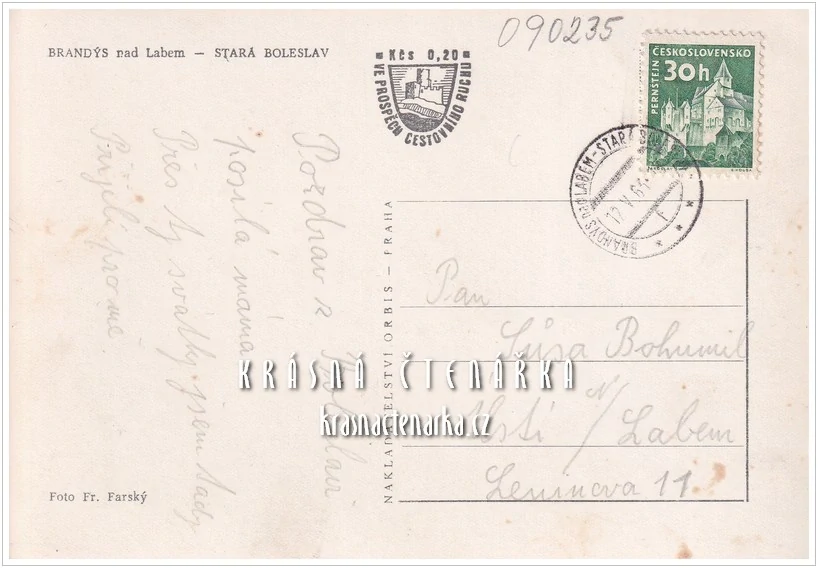 090235
BRANDÝS nad Labem – STARÁ BOLESLAV
Kčs 0,20
VE PROSPĚCH CESTOVNÍHO RUCHU
ČESKOSLOVENSKO
30h
PERNŠTEJN
BRANDÝS nad LABEM-STARÁ
Pozdrav z Boleslavi
posílá máma
Přes ty svátky jsem tady
Přijeli pro mě.
NAKLADATELSTVÍ ORBIS – PRAHA
Pan
Sůsa Bohumil
Ústí n/ Labem
Leninova 11
KRÁSNÁ ČTENÁŘKA
krasnactenarka.cz
Foto Fr. Farský